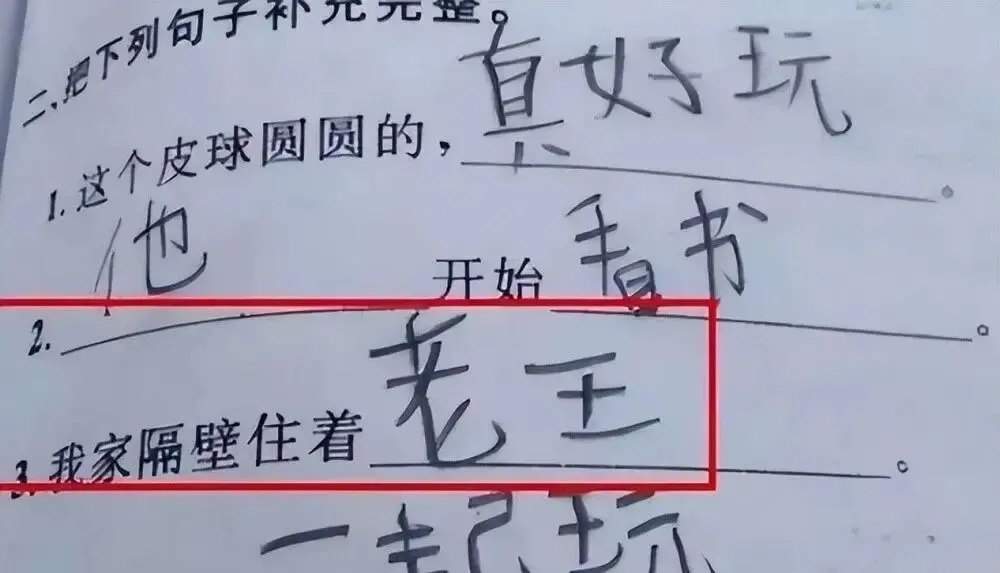 二、把下列句子补充完整。
1. 这个皮球圆圆的，真好玩。
2. 他开始看书。
3. 我家隔壁住着老王。
一起玩